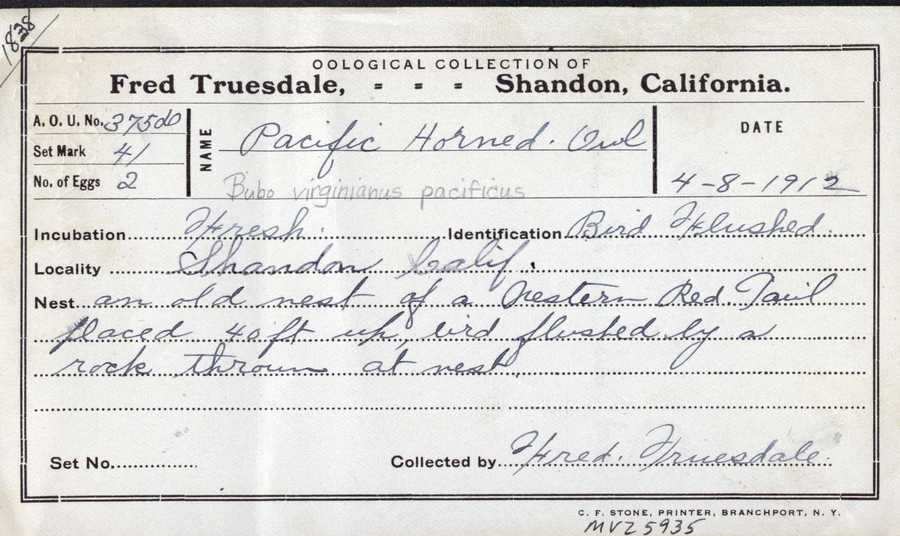 1838
OOLOGICAL COLLECTION OF
Fred Truesdale, - - - Shandon, California.
A. O. U. No. 375d
Set Mark 41
No. of Eggs 2
NAME Pacific Horned. Owl
Bubo virginianus pacificus
DATE
4-8-1912
Incubation Fresh. Identification Bird Flushed.
Locality Shandon Calif.
Nest an old nest of a Western Red. Tail
placed 40 ft up, bird flushed by a
rock thrown at nest.
Set No. Collected by Fred. Truesdale.
C. F. STONE, PRINTER, BRANCHPORT, N. Y.
MVZ 5935